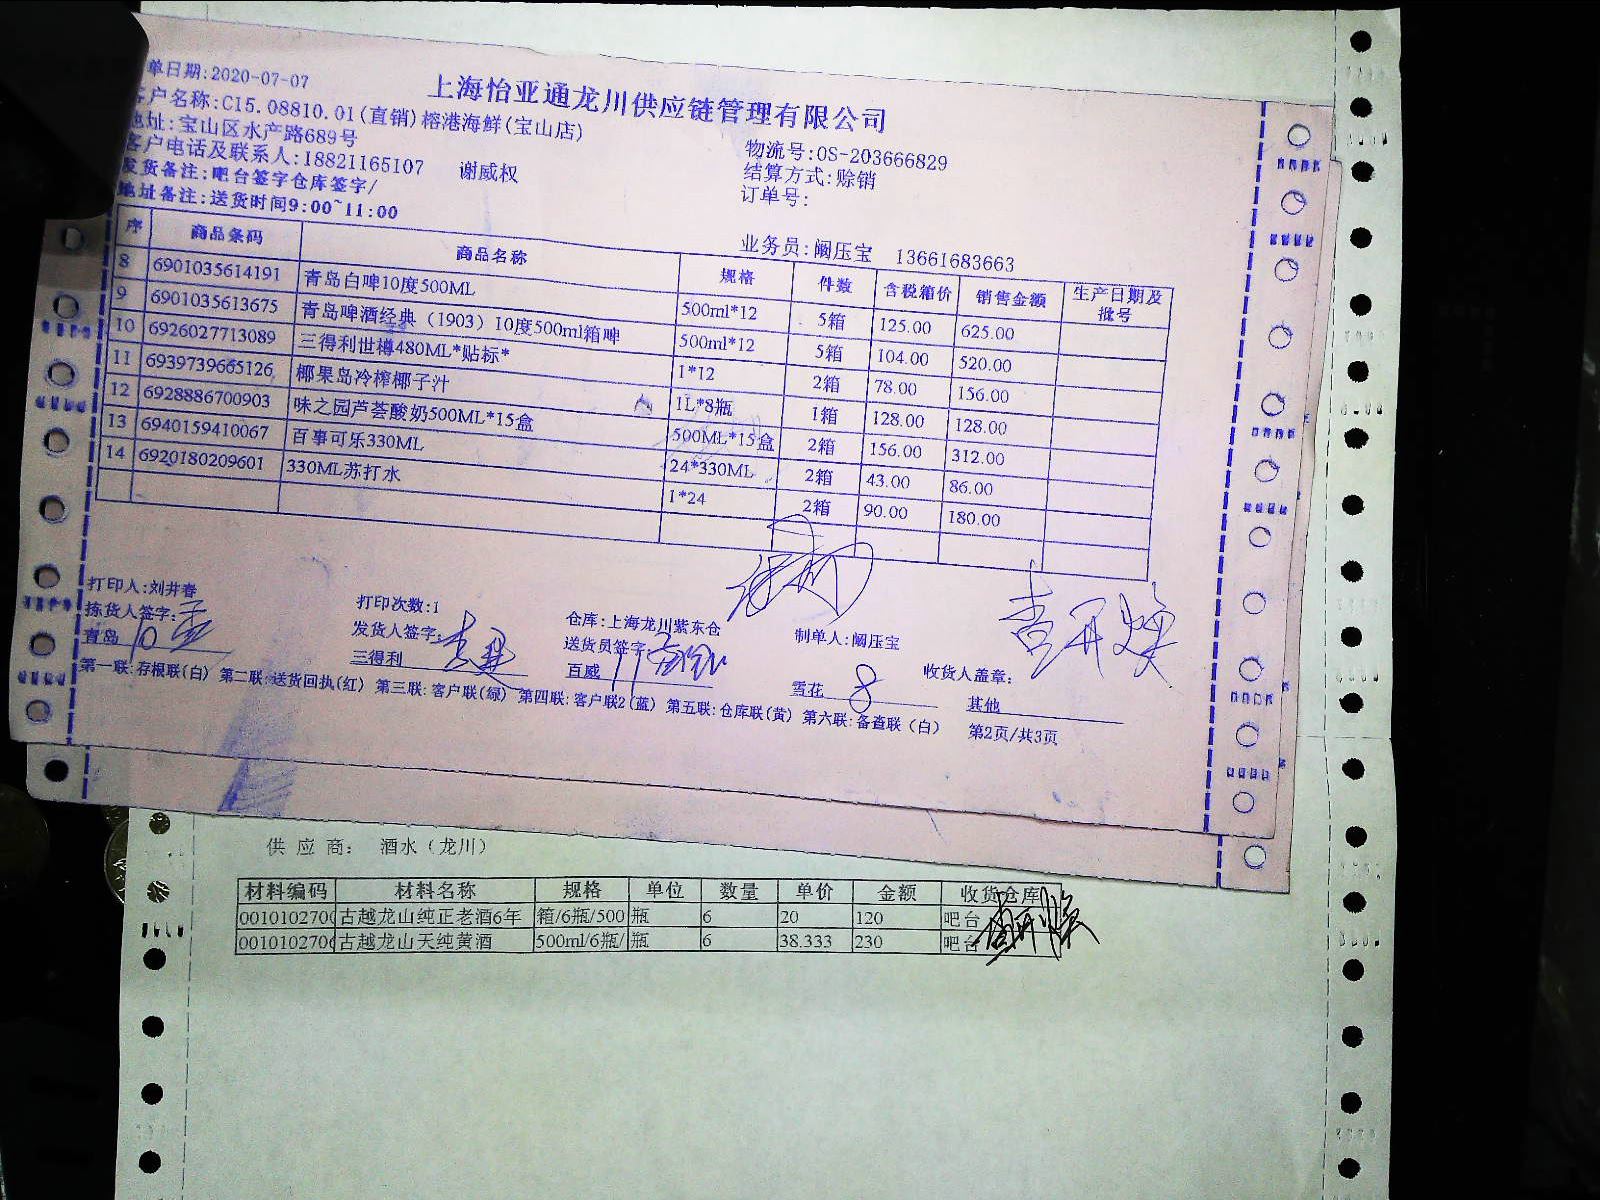 单日期:2020-07-07
上海怡亚通龙川供应链管理有限公司
客户名称:C15.08810.01(直销)榕港海鲜(宝山店)
地址:宝山区水产路689号
物流号:OS-203666829
客户电话及联系人:18821165107 谢威权
结算方式:赊销
发货备注:吧台签字仓库签字/
订单号:
地址备注:送货时间9:00~11:00
业务员:阚压宝 13661683663
序 商品条码 商品名称 规格 件数 含税箱价 销售金额 生产日期及批号
8 6901035614191 青岛白啤10度500ML 500ml*12 5箱 125.00 625.00
9 6901035613675 青岛啤酒经典（1903）10度500ml箱啤 500ml*12 5箱 104.00 520.00
10 6926027713089 三得利世樽480ML*贴标* 1*12 2箱 78.00 156.00
11 6939739665126 椰果岛冷榨椰子汁 1L*8瓶 1箱 128.00 128.00
12 6928886700903 味之园芦荟酸奶500ML*15盒 500ML*15盒 2箱 156.00 312.00
13 6940159410067 百事可乐330ML 24*330ML 2箱 43.00 86.00
14 6920180209601 330ML苏打水 1*24 2箱 90.00 180.00
打印人:刘井春 打印次数:1 仓库:上海龙川紫东仓 制单人:阚压宝
拣货人签字: 发货人签字: 送货员签字 收货人盖章:
青岛 10 三得利 百威 11 雪花 8 其他
第一联:存根联(白) 第二联:送货回执(红) 第三联:客户联(绿) 第四联:客户联2(蓝) 第五联:仓库联(黄) 第六联:备查联（白） 第2页/共3页
供应商: 酒水（龙川）
材料编码 材料名称 规格 单位 数量 单价 金额 收货仓库
0010102700 古越龙山纯正老酒6年 箱/6瓶/500 瓶 6 20 120 吧台
0010102706 古越龙山天纯黄酒 500ml/6瓶/ 瓶 6 38.333 230 吧台